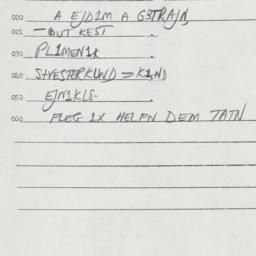 020 A EJDIM A GSTRAJN
021 - BUT KEST .
030 PLIMENIK .
040 SHVESTERKIND = KIND
050 EJNIKLE- .
060 FLEG IX HELFN DEM TATN